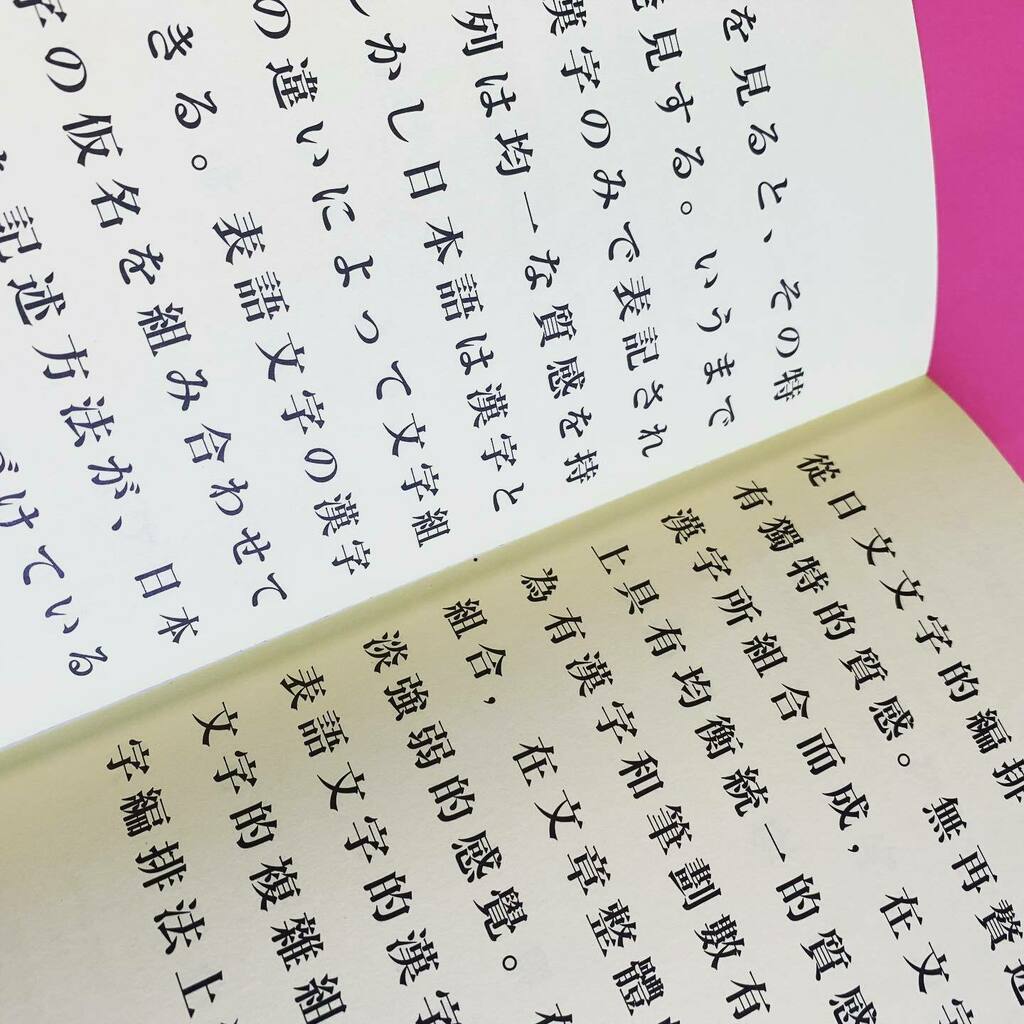 を見ると、その特
発見する。いうまで
漢字のみで表記され
列は均一な質感を持
しかし日本語は漢字と
の違いによって文字組
きる。表語文字の漢字
字の仮名を組み合わせて
記述方法が、日本
づけている
從日文文字的編排
有獨特的質感。無再贅述
漢字所組合而成，在文字
上具有均衡統一的質感
為有漢字和筆劃數有
組合，在文章整體
淡強弱的感覺。
表語文字的漢字
文字的複雜組
字編排法上